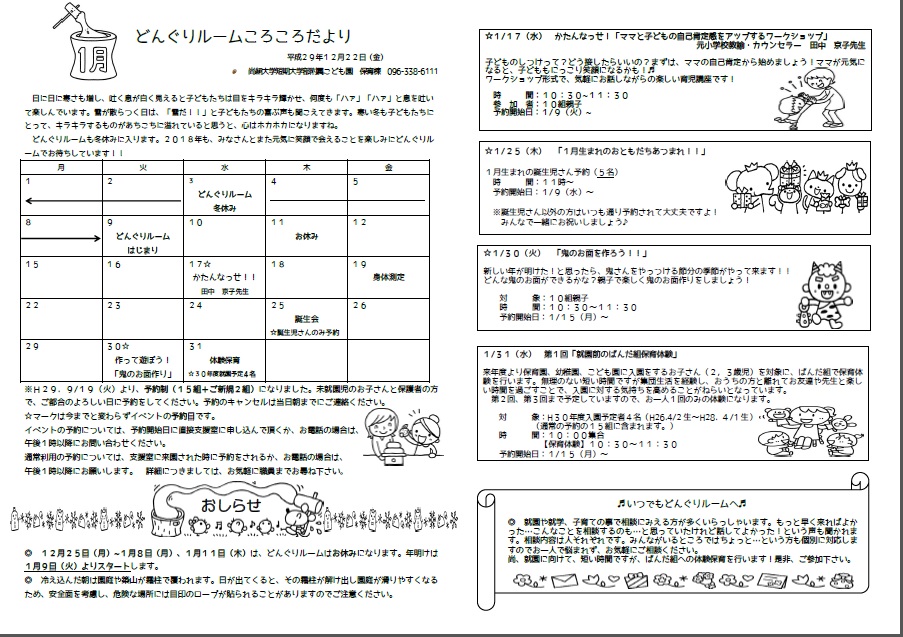 1月
どんぐりルームころころだより
平成29年12月22日（金）
尚絅大学短期大学部附属こども園　保育棟　096-338-6111
日に日に寒さも増し、吐く息が白く見えると子どもたちは目をキラキラ輝かせ、何度も「ハァ」「ハァ」と息を吐い
て楽しんでいます。雪が散らつく日は、「雪だ！！」と子どもたちの喜ぶ声も聞こえてきます。寒い冬も子どもたちに
とって、キラキラするものがあちこちに溢れていると思うと、心はホカホカになりますね。
どんぐりルームも冬休みに入ります。2018年も、みなさんとまた元気に笑顔で会えることを楽しみにどんぐりル
ームでお待ちしています！！
月　火　水　木　金
1　2　3　4　5
どんぐりルーム
冬休み
8　9　10　11　12
どんぐりルーム　お休み
はじまり
15　16　17☆　18　19
かたんなっせ！！　身体測定
田中　京子先生
22　23　24　25　26
誕生会
☆誕生児さんのみ予約
29　30☆　31
作って遊ぼう！　体験保育
「鬼のお面作り」　☆30年度就園予定4名
※H29．9/19（火）より、予約制（15組+ご新規2組）になりました。未就園児のお子さんと保護者の方
で、ご都合のよろしい日に予約をしてください。予約のキャンセルは当日朝までにご連絡ください。
☆マークは今までと変わらずイベントの予約日です。
イベントの予約については、予約開始日に直接支援室に申し込んで頂くか、お電話の場合は、
午後1時以降にお問い合わせください。
通常利用の予約については、支援室に来園された時に予約をされるか、お電話の場合は、
午後1時以降にお願いします。　詳細につきましては、お気軽に職員までお尋ね下さい。
おしらせ
◎　12月25日（月）～1月8日（月）、1月11日（木）は、どんぐりルームはお休みになります。年明けは
1月9日（火）よりスタートします。
◎　冷え込んだ朝は園庭や築山が霜柱で覆われます。日が出てくると、その霜柱が解け出し園庭が滑りやすくなる
ため、安全面を考慮し、危険な場所には目印のロープが貼られることがありますのでご注意ください。
☆1/17（水）　かたんなっせ！「ママと子どもの自己肯定感をアップするワークショップ」
元小学校教諭・カウンセラー　田中　京子先生
子どものしつけって？どう接したらいいの？まずは、ママの自己肯定から始めましょう！ママが元気に
なると、子どももにっこり笑顔になるかも！♬
ワークショップ形式で、気軽にお話しながらの楽しい育児講座です！
時　　間：10：30～11：30
参　加　者：10組親子
予約開始日：1/9（火）～
☆1/25（木）　「1月生まれのおともだちあつまれ！！」
1月生まれの誕生児さん予約（5名）
時　　間：11時～
予約開始日：1/9（水）～
※誕生児さん以外の方はいつも通り予約されて大丈夫ですよ！
みんなで一緒にお祝いしましょう♪
☆1/30（火）　「鬼のお面を作ろう！！」
新しい年が明けた！と思ったら、鬼さんをやっつける節分の季節がやって来ます！！
どんな鬼のお面ができるかな？親子で楽しく鬼のお面作りをしましょう！
対　　象：10組親子
時　　間：10：30～11：30
予約開始日：1/15（月）～
1/31（水）　第1回「就園前のぱんだ組保育体験」
来年度より保育園、幼稚園、こども園に入園をするお子さん（2，3歳児）を対象に、ぱんだ組で保育体
験を行います。無理のない短い時間ですが集団生活を経験し、おうちの方と離れてお友達や先生と楽し
い時間を過ごすことで、入園に対する気持ちを高めることがねらいとなっています。
第2回、第3回まで予定していますので、お一人1回のみの体験になります。
対　　象：H30年度入園予定者4名（H26.4/2生～H28．4/1生）
（通常の予約の15組に含まれます。）
時　　間：10：00集合
【保育体験】10：30～11：30
予約開始日：1/15（月）～
♬いつでもどんぐりルームへ♬
◎　就園や就学、子育ての事で相談にみえる方が多くいらっしゃいます。もっと早く来ればよか
った…こんなことを相談するのも…と思っていたけれど話してよかった！という声も聞かれま
す。相談内容は人それぞれです。みんながいるところではちょっと…という方も個別に対応しま
すのでお一人で悩まず、お気軽にご相談ください。
尚、就園に向けて、短い時間ですが、ぱんだ組への体験保育を行います！是非、ご参加下さい。